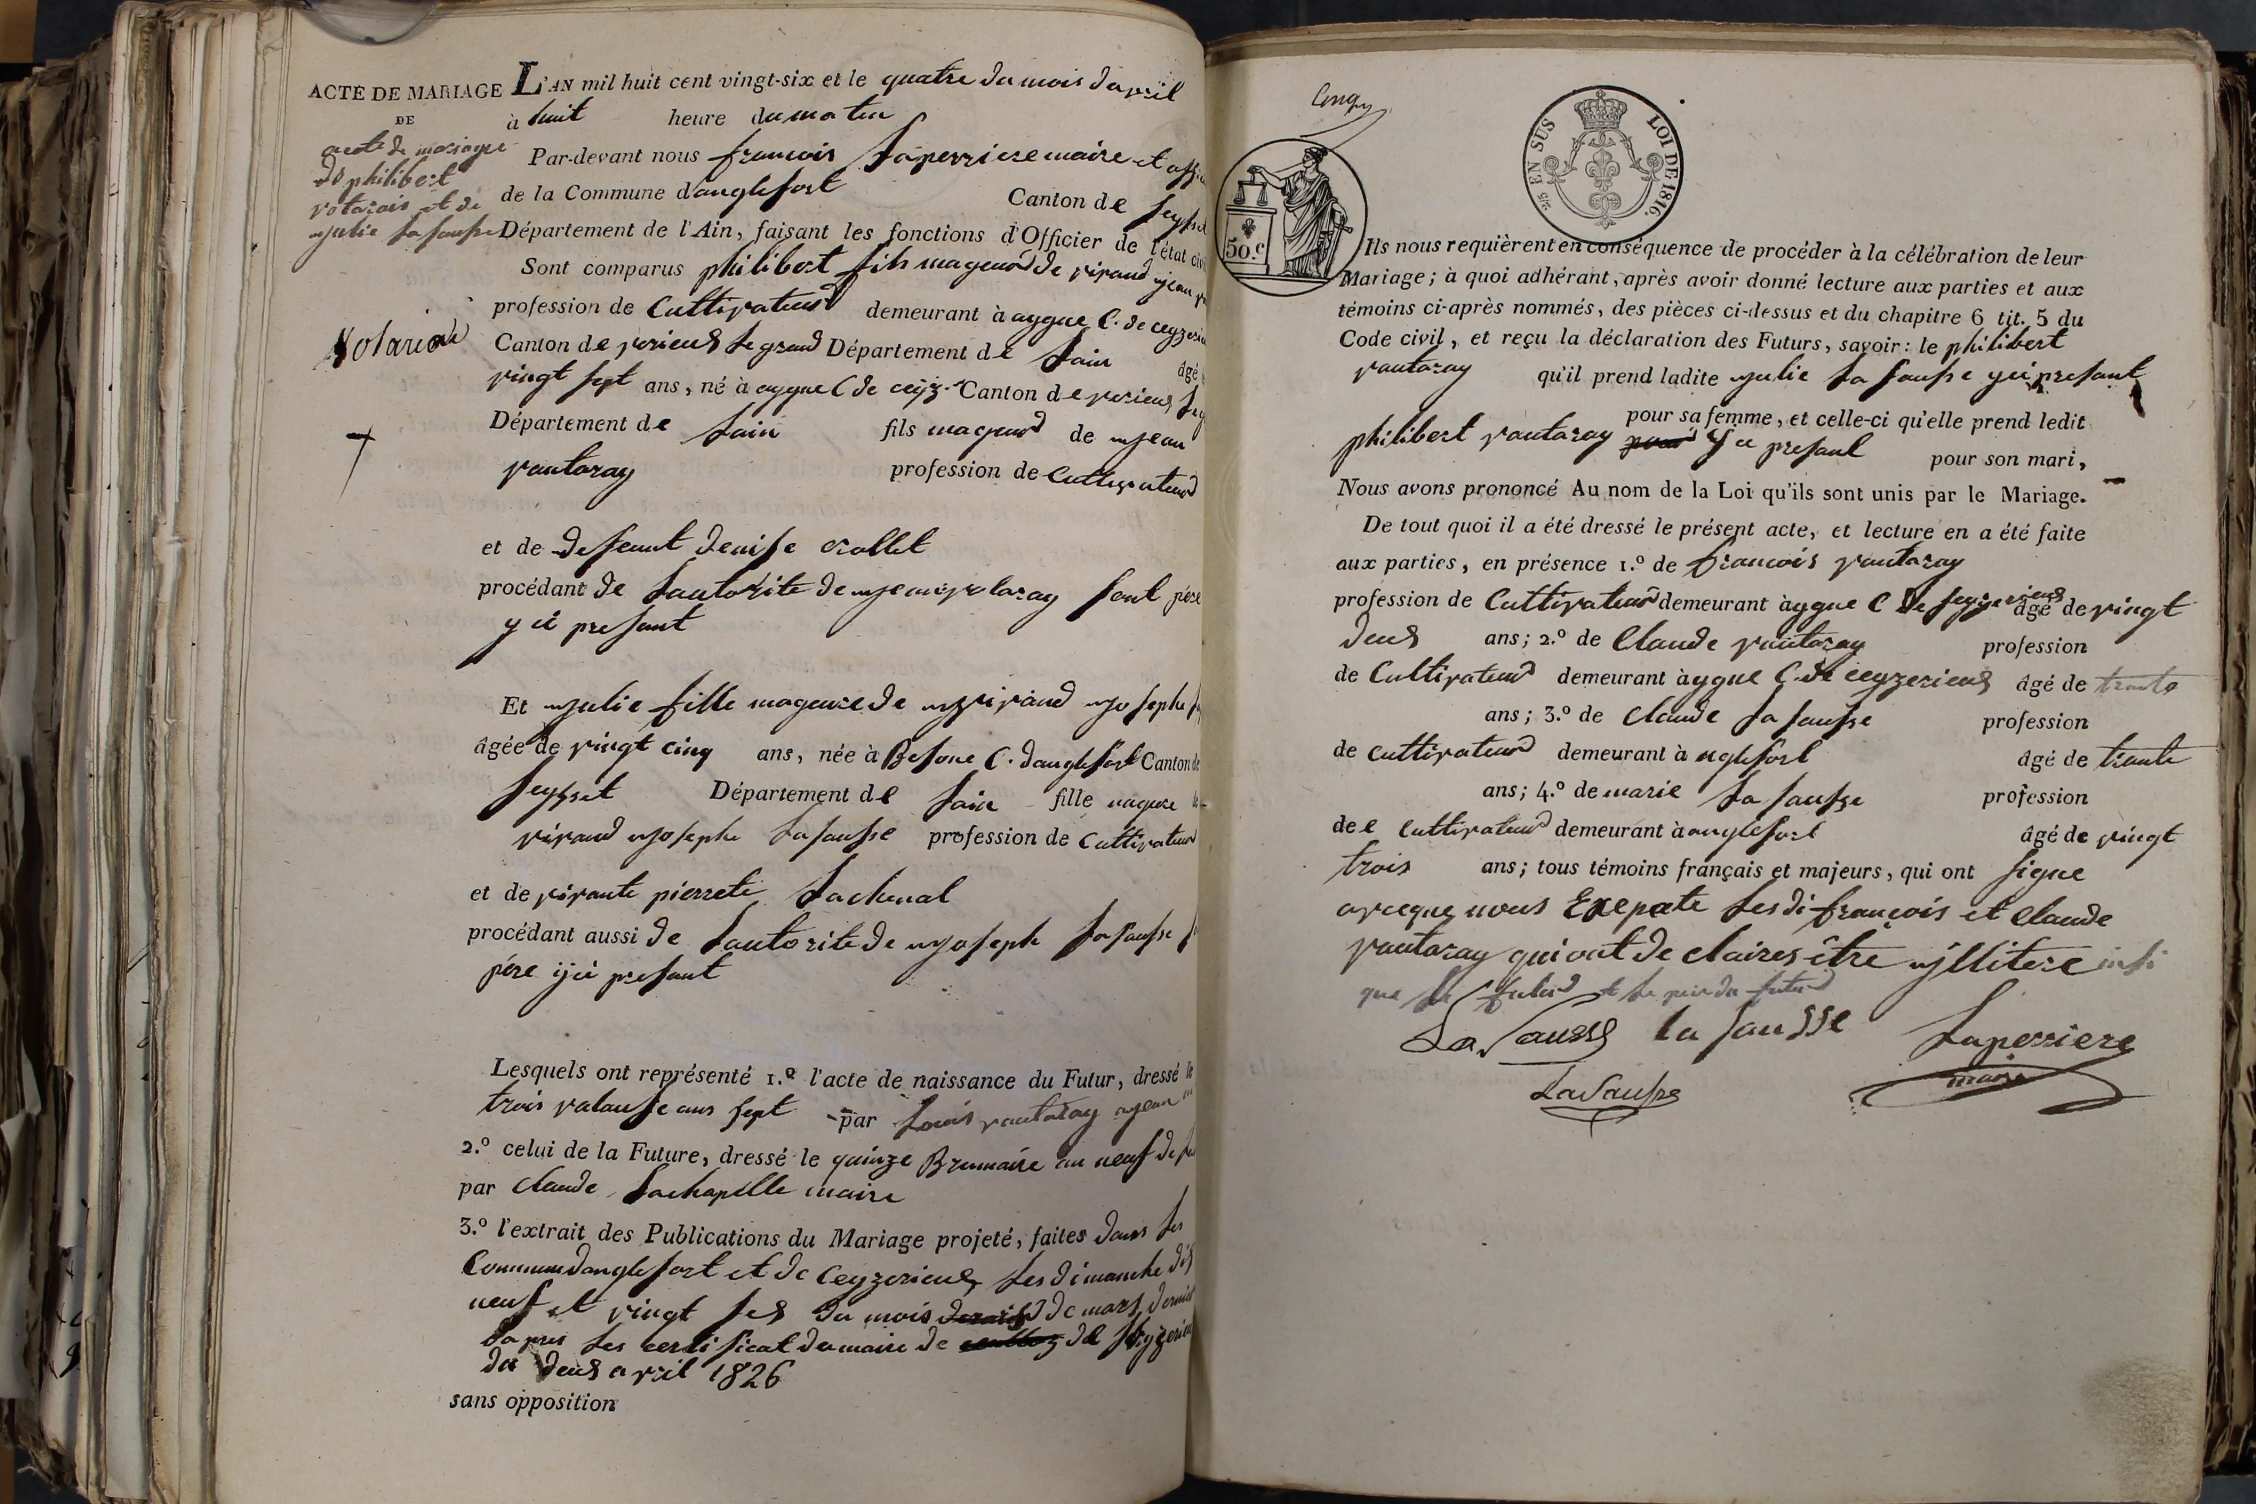 ACTE DE MARIAGE
DE
acte de mariage
de philibert
votarais et de
julie la sausse
Notarial
L'AN mil huit cent vingt-six et le quatre du mois davril
à huit heure du matin
Par-devant nous francois Laperriere maire et
de la Commune danglefort Canton de seyssel
Département de l'Ain, faisant les fonctions d'Officier de l'état civil
Sont comparus philibert fils mageur de vivand jean
profession de Cultivateur demeurant à aygue C. de ceyzerieu
Canton de virieux le grand Département de Lain âgé
vingt sept ans, né à aygue C de ceyz. Canton de virieux
Département de Lain fils mageur de jean
vautaray profession de Cultivateur
et de defeunt denise collet
procédant de Lautorite de jean votaray sont père
y ci presant
Et julie fille mageure de vivand joseph
âgée de vingt cinq ans, née à Besone C. danglefort Canton de
seyssel Département de Lain fille mageure de
vivand joseph La sausse profession de Cultivateur
et de vivante pierrete Lachenal
procédant aussi de Lautorite de joseph La sausse
père ÿci presant
Lesquels ont représenté 1.º l'acte de naissance du Futur, dressé le
trois valause ans sept par Louis vautaray
2.º celui de la Future, dressé le quinze Brumaire an neuf
par claude Lachapelle maire
3.º l'extrait des Publications du Mariage projeté, faites dans les
Commune danglefort et de Ceyzerieux les dimanche dis
neuf et vingt ses du mois de mars dernier
dapres les certificat du maire de de seyzerieu
du deus avril 1826
sans opposition
EN SUS LOI DE 1816.
50.c
Ils nous requièrent en conséquence de procéder à la célébration de leur
Mariage; à quoi adhérant, après avoir donné lecture aux parties et aux
témoins ci-après nommés, des pièces ci-dessus et du chapitre 6 tit. 5 du
Code civil, et reçu la déclaration des Futurs, savoir: le philibert
vautaray qu'il prend ladite julie La sausse y ci presant
pour sa femme, et celle-ci qu'elle prend ledit
philibert vautaray pour y ci presant pour son mari,
Nous avons prononcé Au nom de la Loi qu'ils sont unis par le Mariage.
De tout quoi il a été dressé le présent acte, et lecture en a été faite
aux parties, en présence 1.º de francois vautaray
profession de Cultivateur demeurant à ygue C de seyzerieux âgé de vingt
deus ans; 2.º de Claude vautaray profession
de Cultivateur demeurant à ygue C. de ceyzerieux âgé de trante
ans; 3.º de claude La sausse profession
de cultivateur demeurant à nglefort âgé de trante
ans; 4.º de marie La sausse profession
de e cultivateur demeurant à anglefort âgé de vingt
trois ans; tous témoins français et majeurs, qui ont signe
aveque nous Exepate Les di francois et claude
vautaray qui ont de claires être illitere insi
que le futur et le père du futur
La Sausse la sausse Laperriere
LaSausse maire